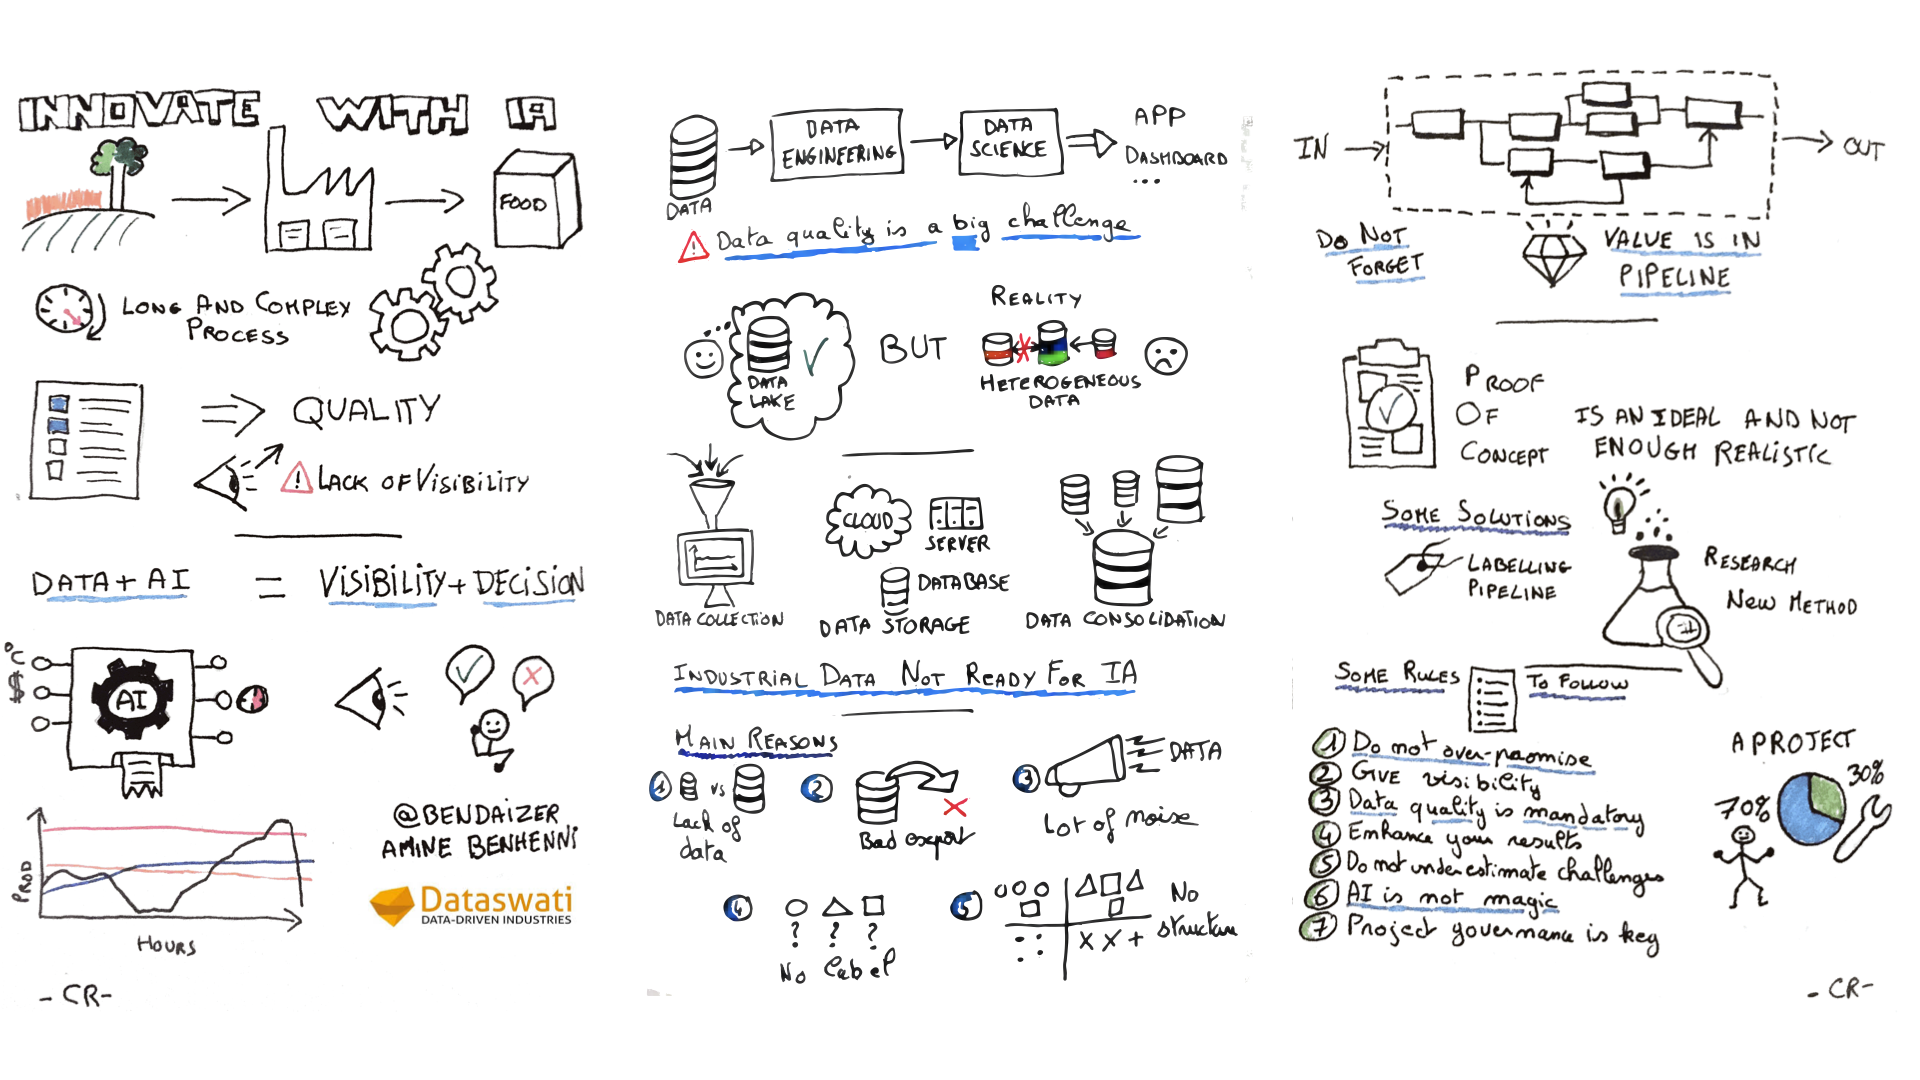 INNOVATE WITH IA
FOOD
LONG AND COMPLEX
PROCESS
QUALITY
! LACK OF VISIBILITY
DATA + AI = VISIBILITY + DECISION
°C
$
AI
PROD
HOURS
@BENDAIZER
AMINE BENHENNI
Dataswati
DATA-DRIVEN INDUSTRIES
- CR -
DATA
DATA
ENGINEERING
DATA
SCIENCE
APP
DASHBOARD
...
! Data quality is a big challenge
DATA
LAKE
BUT
REALITY
HETEROGENEOUS
DATA
DATA COLLECTION
CLOUD
SERVER
DATABASE
DATA STORAGE
DATA CONSOLIDATION
INDUSTRIAL DATA NOT READY FOR IA
MAIN REASONS
1 vs
Lack of
data
2
Bad export
3 DATA
Lot of noise
4
? ? ?
No label
5
No
structure
IN
OUT
DO NOT
FORGET
VALUE IS IN
PIPELINE
PROOF
OF
CONCEPT
IS AN IDEAL AND NOT
ENOUGH REALISTIC
SOME SOLUTIONS
LABELLING
PIPELINE
RESEARCH
NEW METHOD
SOME RULES TO FOLLOW
1 Do not over-promise
2 GIVE visibility
3 Data quality is mandatory
4 Enhance your results
5 Do not underestimate challenges
6 AI is not magic
7 Project governance is key
A PROJECT
70%
30%
- CR -